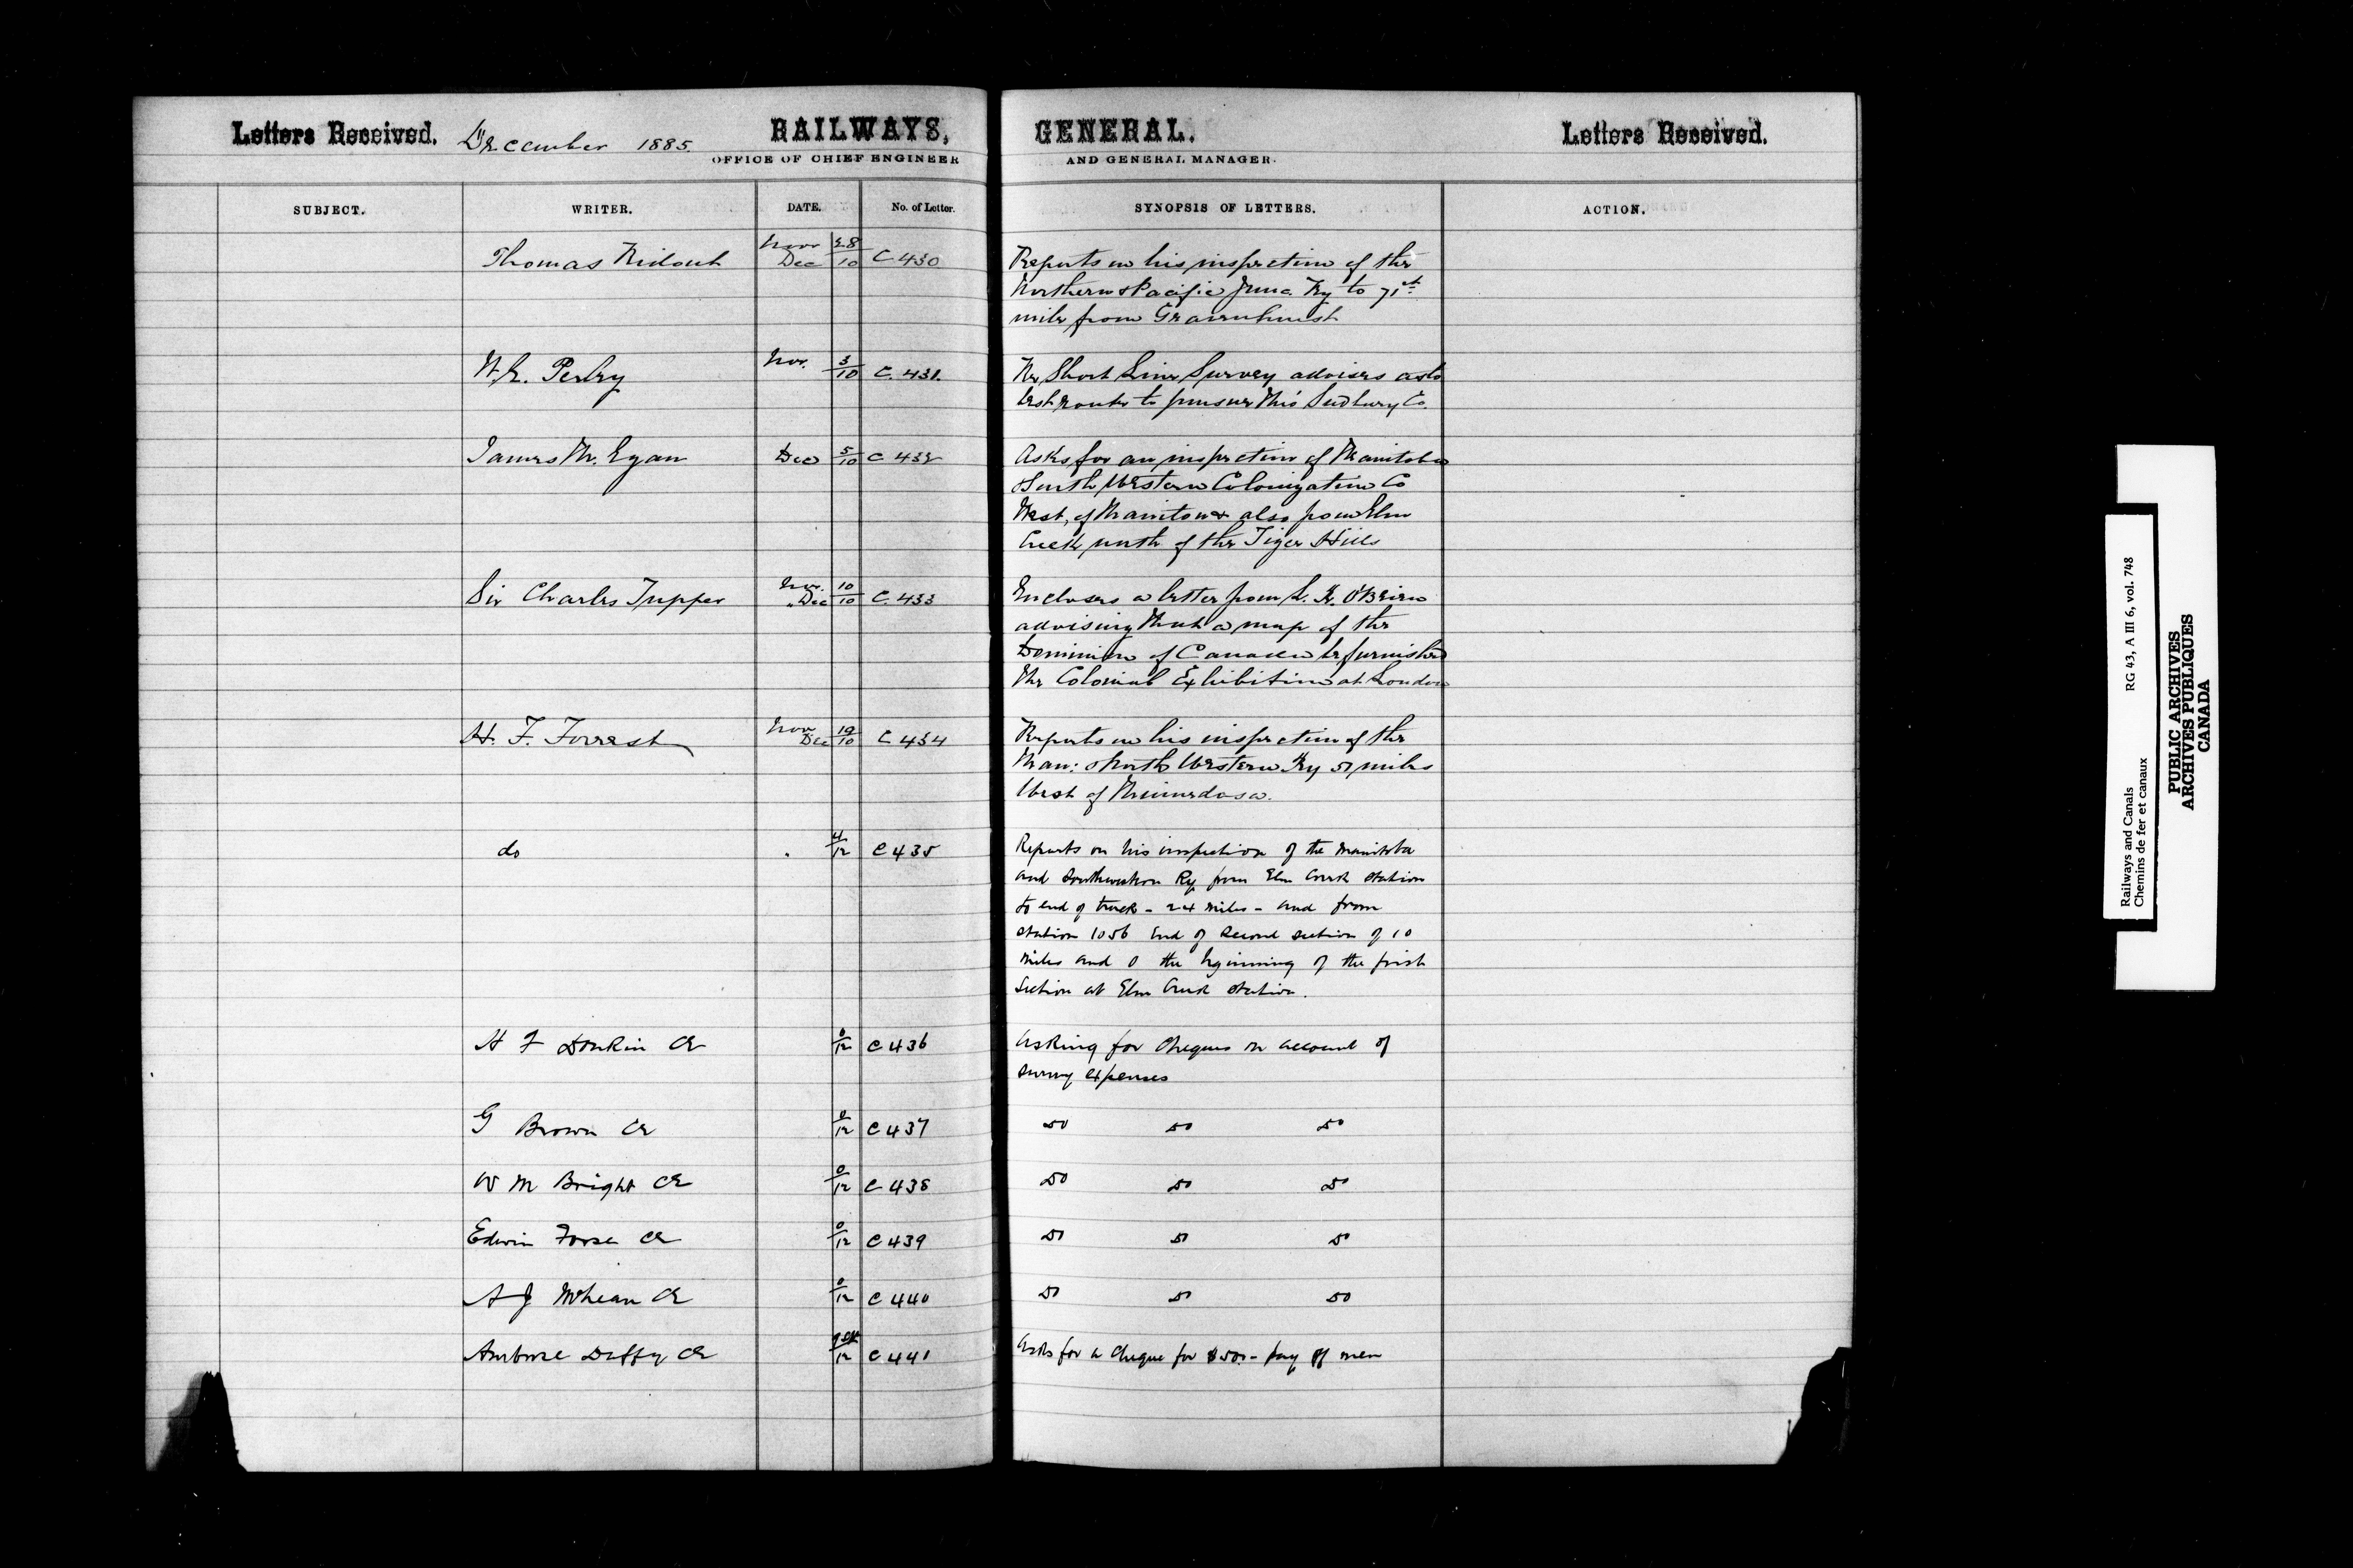 Letters Received. December 1885. RAILWAYS, GENERAL. Letters Received.
OFFICE OF CHIEF ENGINEER AND GENERAL MANAGER.
SUBJECT. WRITER. DATE. No. of Letter. SYNOPSIS OF LETTERS. ACTION.
Nov 28
Thomas Ridout Dec 10 C 430 Reports on his inspection of the
Northern & Pacific Junc. Ry to 71st
mile from Gravenhurst
Nov. 3/10 C. 431.
Perley Re Short Line Survey advises as to
best route to pursue
James M. Egan Dec 5/10 C 432 Asks for an inspection of Manitoba
& South Western Colonization Co
West, of Manitou & also from Elm
Creek north of the Tiger Hills
Nov. 10
Sir Charles Tupper Dec 10 C. 433 Encloses a letter from L. R. O'Brien
advising that a map of the
Dominion of Canada be furnished
the Colonial Exhibition at London
Nov 19
H. F. Forrest Dec 10 C 434 Reports on his inspection of the
Man: & North Western Ry 51 miles
West of Minnedosa.
do 4/12 C 435 Reports on his inspection of the Manitoba
and Southwestern Ry from Elm Creek station
to end of track - 24 miles - and from
station 1056 End of Second section of 10
miles and 0 the beginning of the first
Section at Elm Creek station.
H F Donkin CE C 436 Asking for Cheques on account of
survey expenses
G Brown CE C 437 do do do
W M Bright CE C 438 do do do
Edwin CE C 439 do do do
A J McLean CE C 440 do do do
Ambrose Duffy CE C 441 Asks for a Cheque for $500 - pay off men
Railways and Canals RG 43, A III 6, vol. 748
Chemins de fer et canaux
PUBLIC ARCHIVES
ARCHIVES PUBLIQUES
CANADA